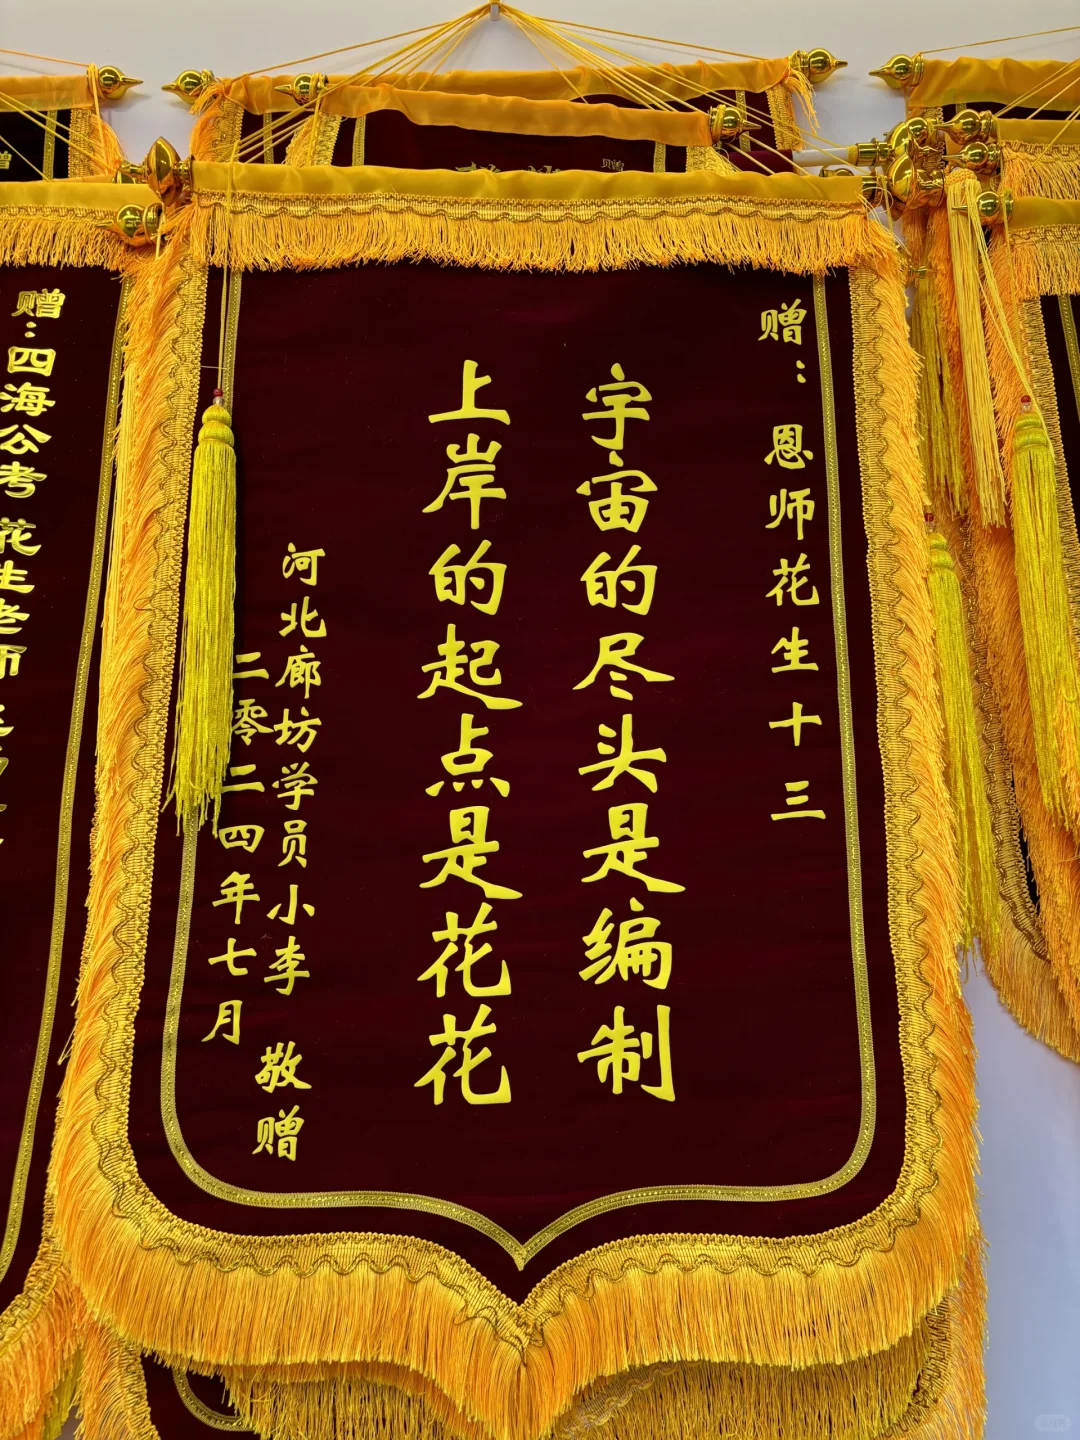 赠：恩师花生十三
宇宙的尽头是编制
上岸的起点是花花
河北廊坊学员小李 敬赠
二零二四年七月
赠：四海公考 花生老师
赠